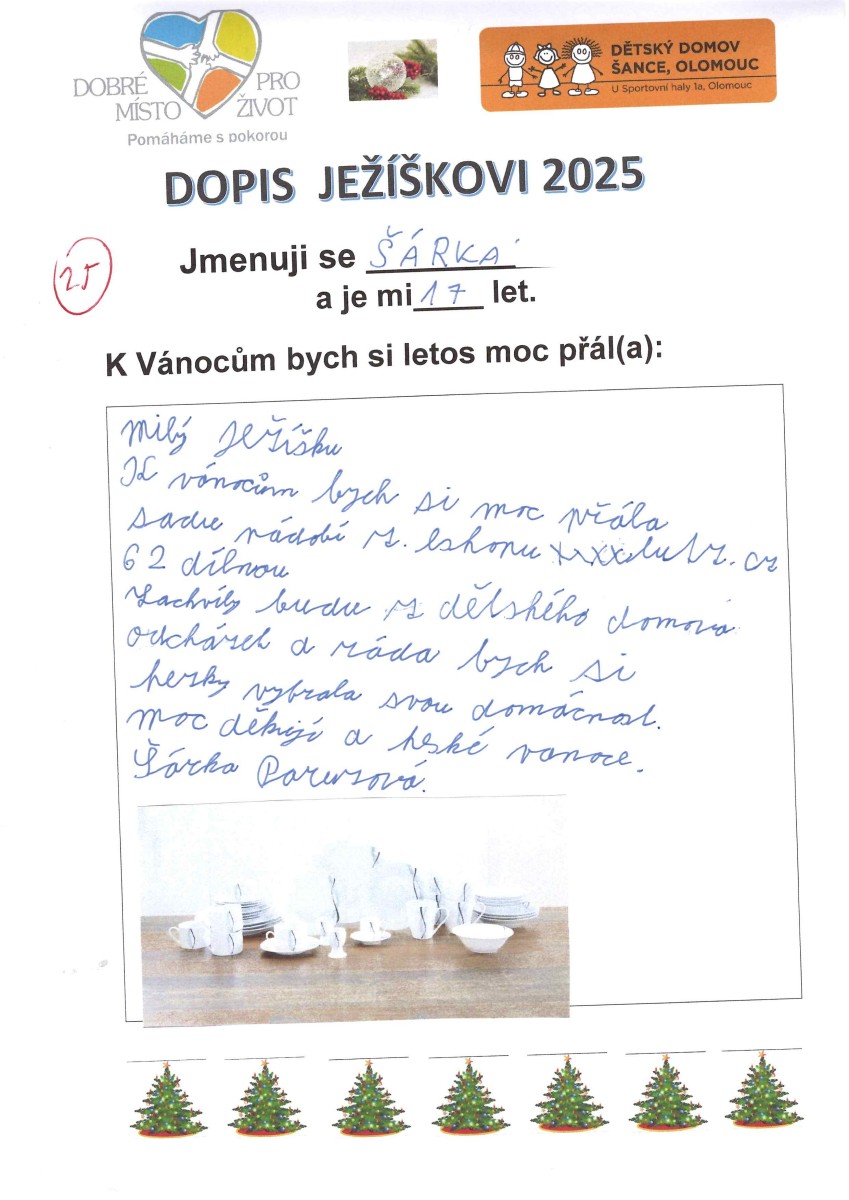 DOBRÉ PRO
MÍSTO ŽIVOT
Pomáháme s pokorou
DĚTSKÝ DOMOV
ŠANCE, OLOMOUC
U Sportovní haly 1a, Olomouc
DOPIS JEŽÍŠKOVI 2025
25
Jmenuji se ŠÁRKA
a je mi 17 let.
K Vánocům bych si letos moc přál(a):
Milý Ježíšku
K vánocům bych si moc přála
sadu nádobí z. eshopu xxxlutz.cz
62 dílnou
budu z dětského domova
odcházet a ráda bych si
hezky vybrala svou domácnost.
moc děkuji a heské vanoce.
Šárka